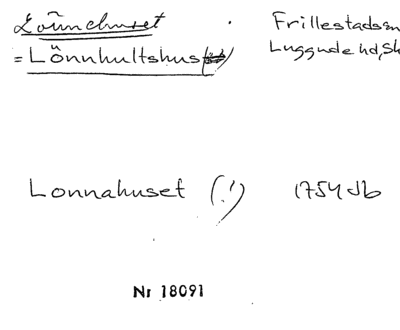 Lönnehuset · Frillestads
= Lönnhultshus Luggude hd, Sk
Lonnahuset (!) 1754 Jb
Nr 18091